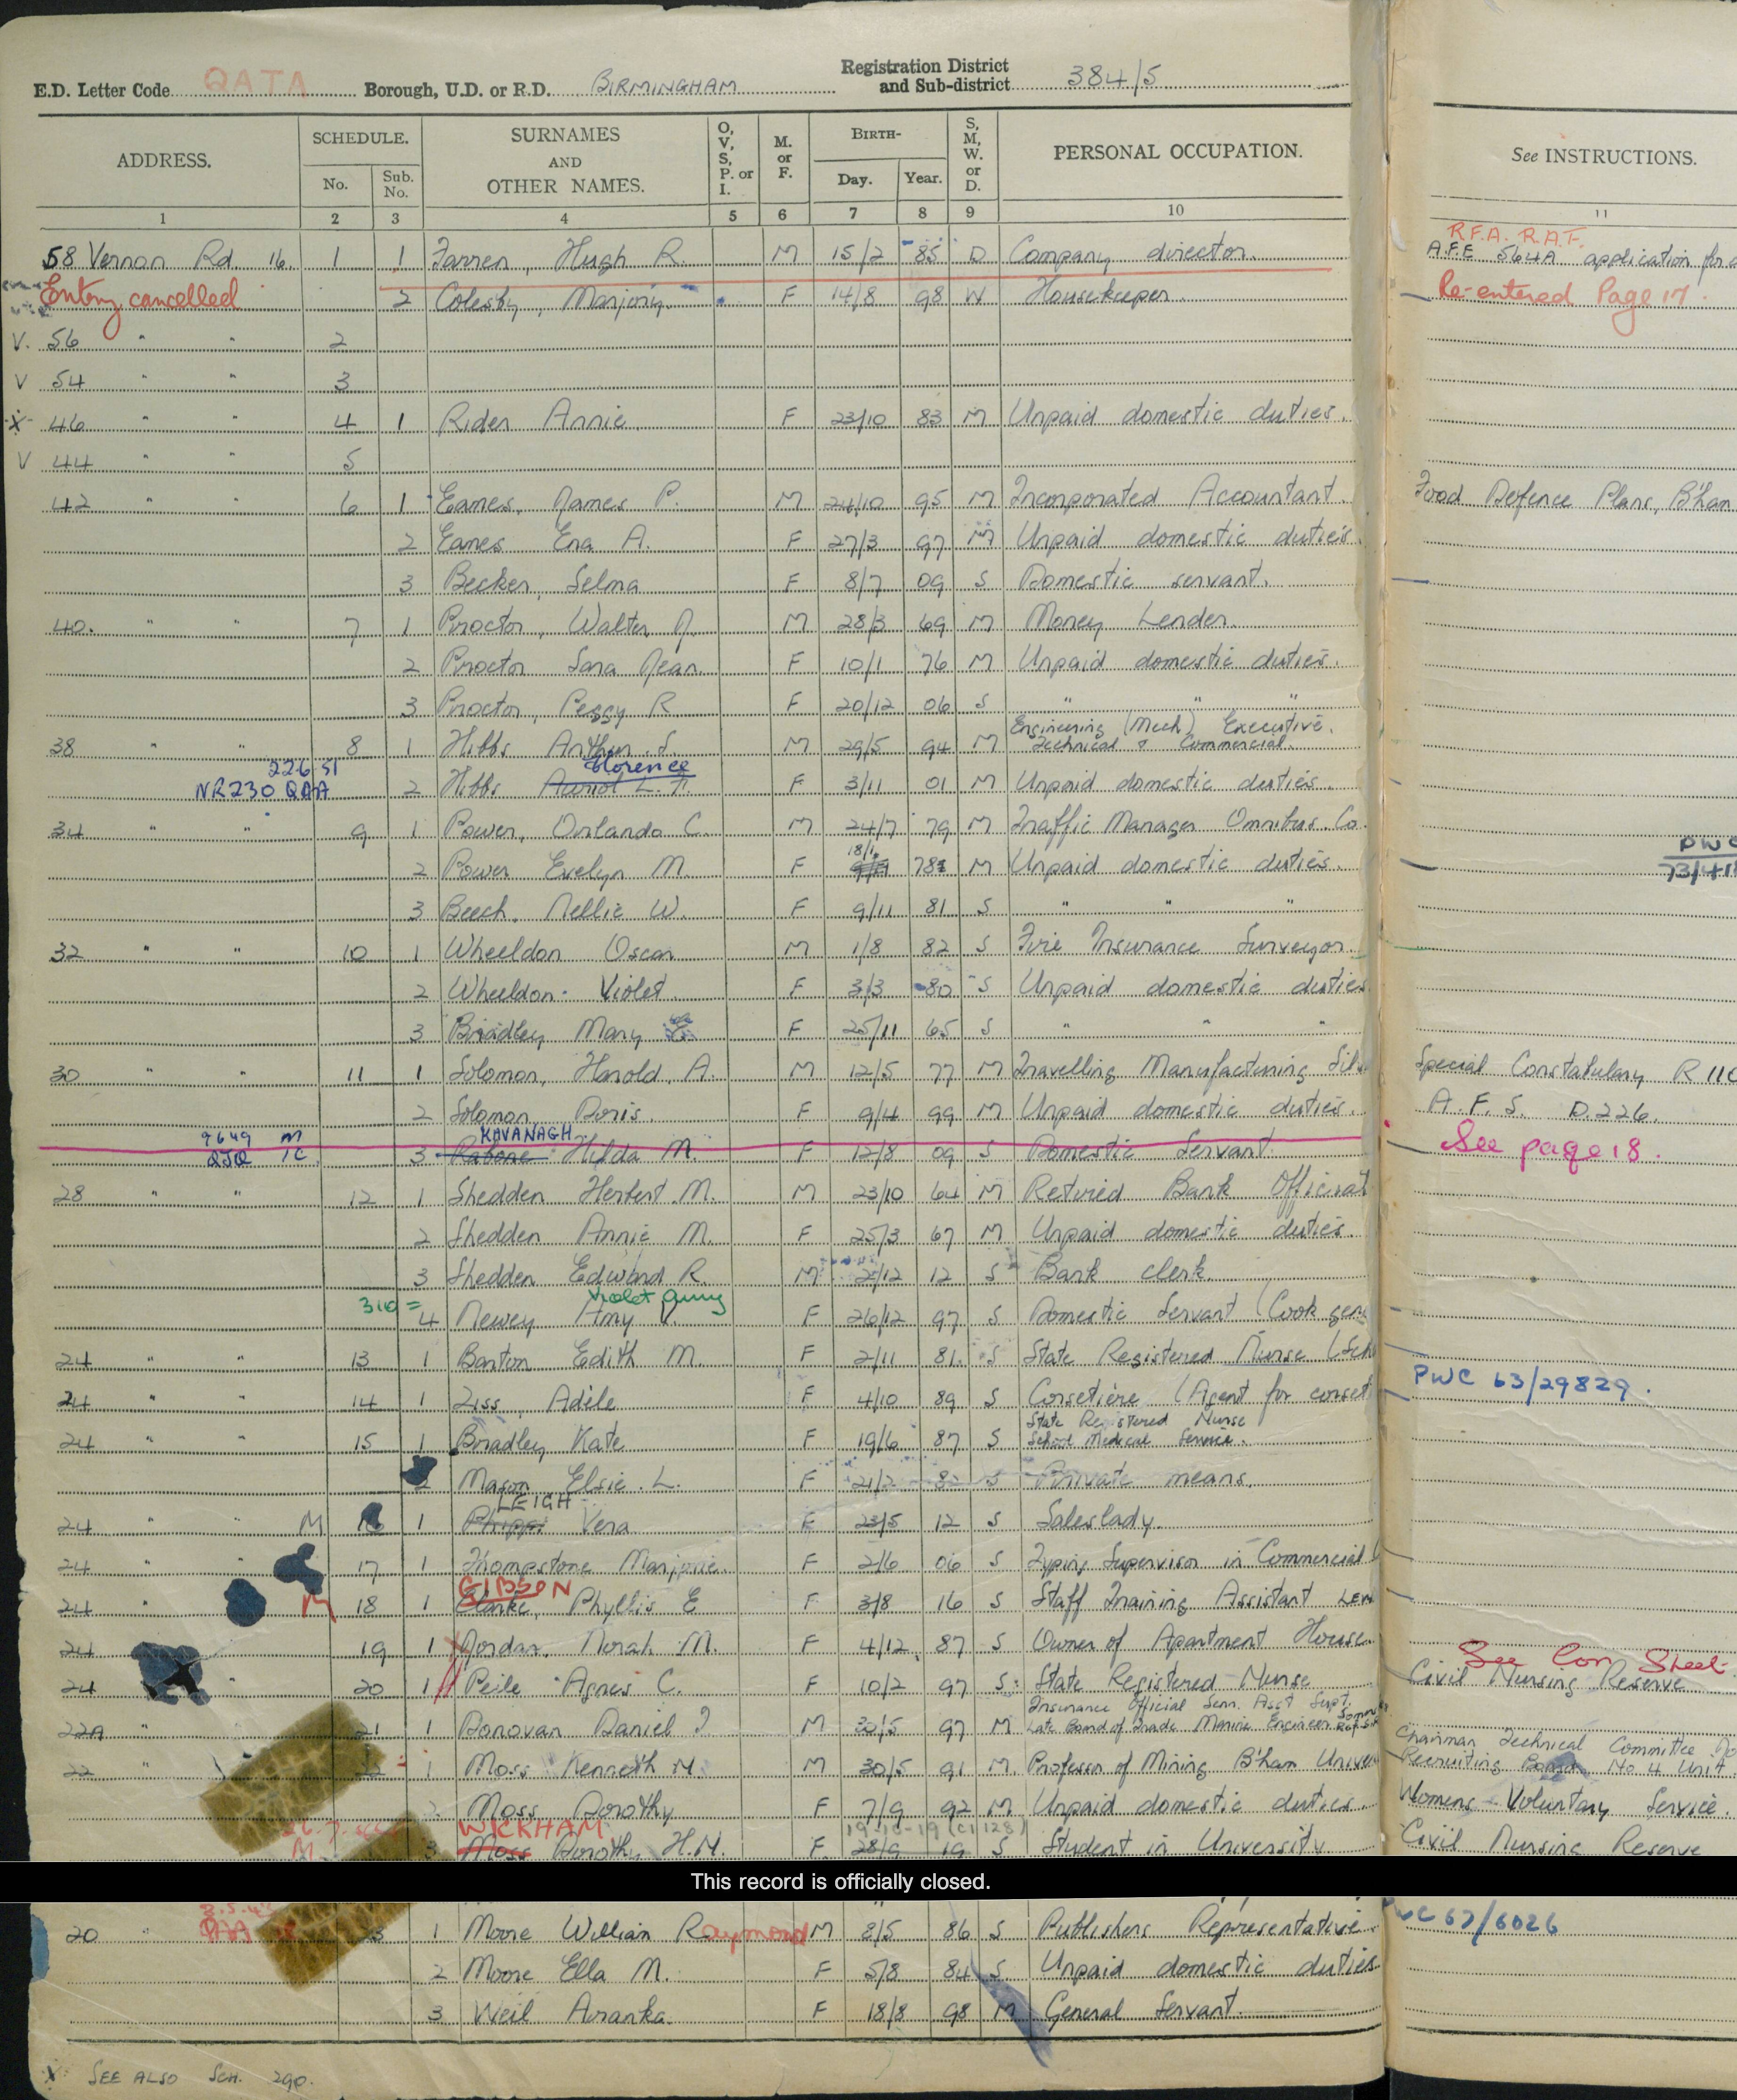 E.D. Letter Code QATA Borough, U.D. or R.D. BIRMINGHAM Registration District and Sub-district 384/5
ADDRESS. SCHEDULE. No. Sub. No. SURNAMES AND OTHER NAMES. O, V, S, P. or I. M. or F. BIRTH- Day. Year. S, M, W. or D. PERSONAL OCCUPATION. See INSTRUCTIONS.
1 2 3 4 5 6 7 8 9 10 11
R.F.A. R.A.F.
58 Vernon Rd. 16. 1 1 Farren, Hugh R. M 15/2 85 D Company director. A.F.E 564A application for
Entry cancelled 2 Colesby, Marjory. F 14/8 98 W Housekeeper. Re-entered Page 17.
V. 56 " " 2
V 54 " " 3
X 46 " " 4 1 Rider Annie. F 23/10 83 M Unpaid domestic duties.
V 44 " " 5
42 " " 6 1 Eames, James P. M 24/10 95 M Incorporated Accountant. Food Defence Plans, B'ham
2 Eames Ena A. F 27/3 97 M Unpaid domestic duties.
3 Becker, Selma F 8/7 09 S Domestic servant.
40. " " 7 1 Proctor, Walter J. M 28/3 69 M Money Lender.
2 Proctor Sara Jean. F 10/1 76 M Unpaid domestic duties.
3 Proctor, Peggy R. F 20/12 06 S " " "
Engineering (Mech) Executive.
38 " " 8 1 Hibbs Arthur S. M 29/5 94 M Technical & Commercial.
22.6.51 Florence
NR230 QAA 2 Hibbs L. F. F 3/11 01 M Unpaid domestic duties.
34 " " 9 1 Power, Orlando C. M 24/7 79 M Traffic Manager Omnibus Co.
18/1 PWC
2 Power Evelyn M. F 78 M Unpaid domestic duties. 73/41
3 Beech. Nellie W. F 9/11 81 S " " "
32 " " 10 1 Wheeldon Oscar M 1/8 82 S Fire Insurance Surveyor.
2 Wheeldon Violet. F 3/3 80 S Unpaid domestic duties
3 Bradley Mary F 25/11 65 S " " "
30 " " 11 1 Solomon, Harold. A. M 12/5 77 M Travelling Manufacturing Silv Special Constabulary R 110
2 Solomon, Doris. F 9/4 99 M Unpaid domestic duties. A.F.S. D.226.
9649 M KAVANAGH
QJQ 3 Rabone Hilda M. F 12/8 09 S Domestic Servant. See page 18.
28 " " 12 1 Shedden Herbert M. M 23/10 64 M Retired Bank Official
2 Shedden Annie M. F 25/3 67 M Unpaid domestic duties.
3 Shedden Edward R. M 2/12 12 S Bank clerk.
310 = Violet Amy
4 Newey Amy V. F 26/12 97 S Domestic Servant (Cook gen
24 " " 13 1 Barton Edith M. F 2/11 81. S State Registered Nurse (Sch
PWC 63/29829.
24 " " 14 1 Ziss, Adèle F 4/10 89 S Corsetière (Agent for corset
State Registered Nurse
24 " " 15 1 Bradley Kate F 19/6 87 S School Medical Service.
2 Mason Elsie. L. F 21/2 82 S Private means.
LEIGH
24 " " M 16 1 Phipps Vera F 23/5 12 S Saleslady.
24 " " 17 1 Thompstone Marjorie. F 2/6 06 S Typing Supervisor in Commercial
GIBSON
24 M 18 1 Clarke, Phyllis E F 3/8 16 S Staff Training Assistant
24 19 1 Jordan, Norah M. F 4/12 87 S Owner of Apartment House.
See Con Sheet
24 " 20 1 Peile Agnes C. F 10/2 97 S State Registered Nurse Civil Nursing Reserve
Insurance Official Senr. Asst Supt.
22A " 21 1 Donovan Daniel J M 30/5 97 M Late Board of Trade Marine Engineer
Chairman Technical Committee
22 " 22 1 Moss Kenneth N. M 30/5 91 M. Professor of Mining B'ham Univer Recruiting Board No 4 Unit.
2 Moss Dorothy F 7/9 92 M Unpaid domestic duties. Womens Voluntary Service.
WICKHAM 19-10-19 (C1 128)
M. 3 Moss Dorothy H.M. F. 28/9 19 S Student in University Civil Nursing Reserve
This record is officially closed.
20 " 1 Moore William Raymond M 8/5 86 S Publishers Representative. 67/6026
2 Moore Ella M. F 5/8 84 S Unpaid domestic duties.
3 Weil Aranka. F 18/8 98 M General Servant.
X SEE ALSO SCH. 290.